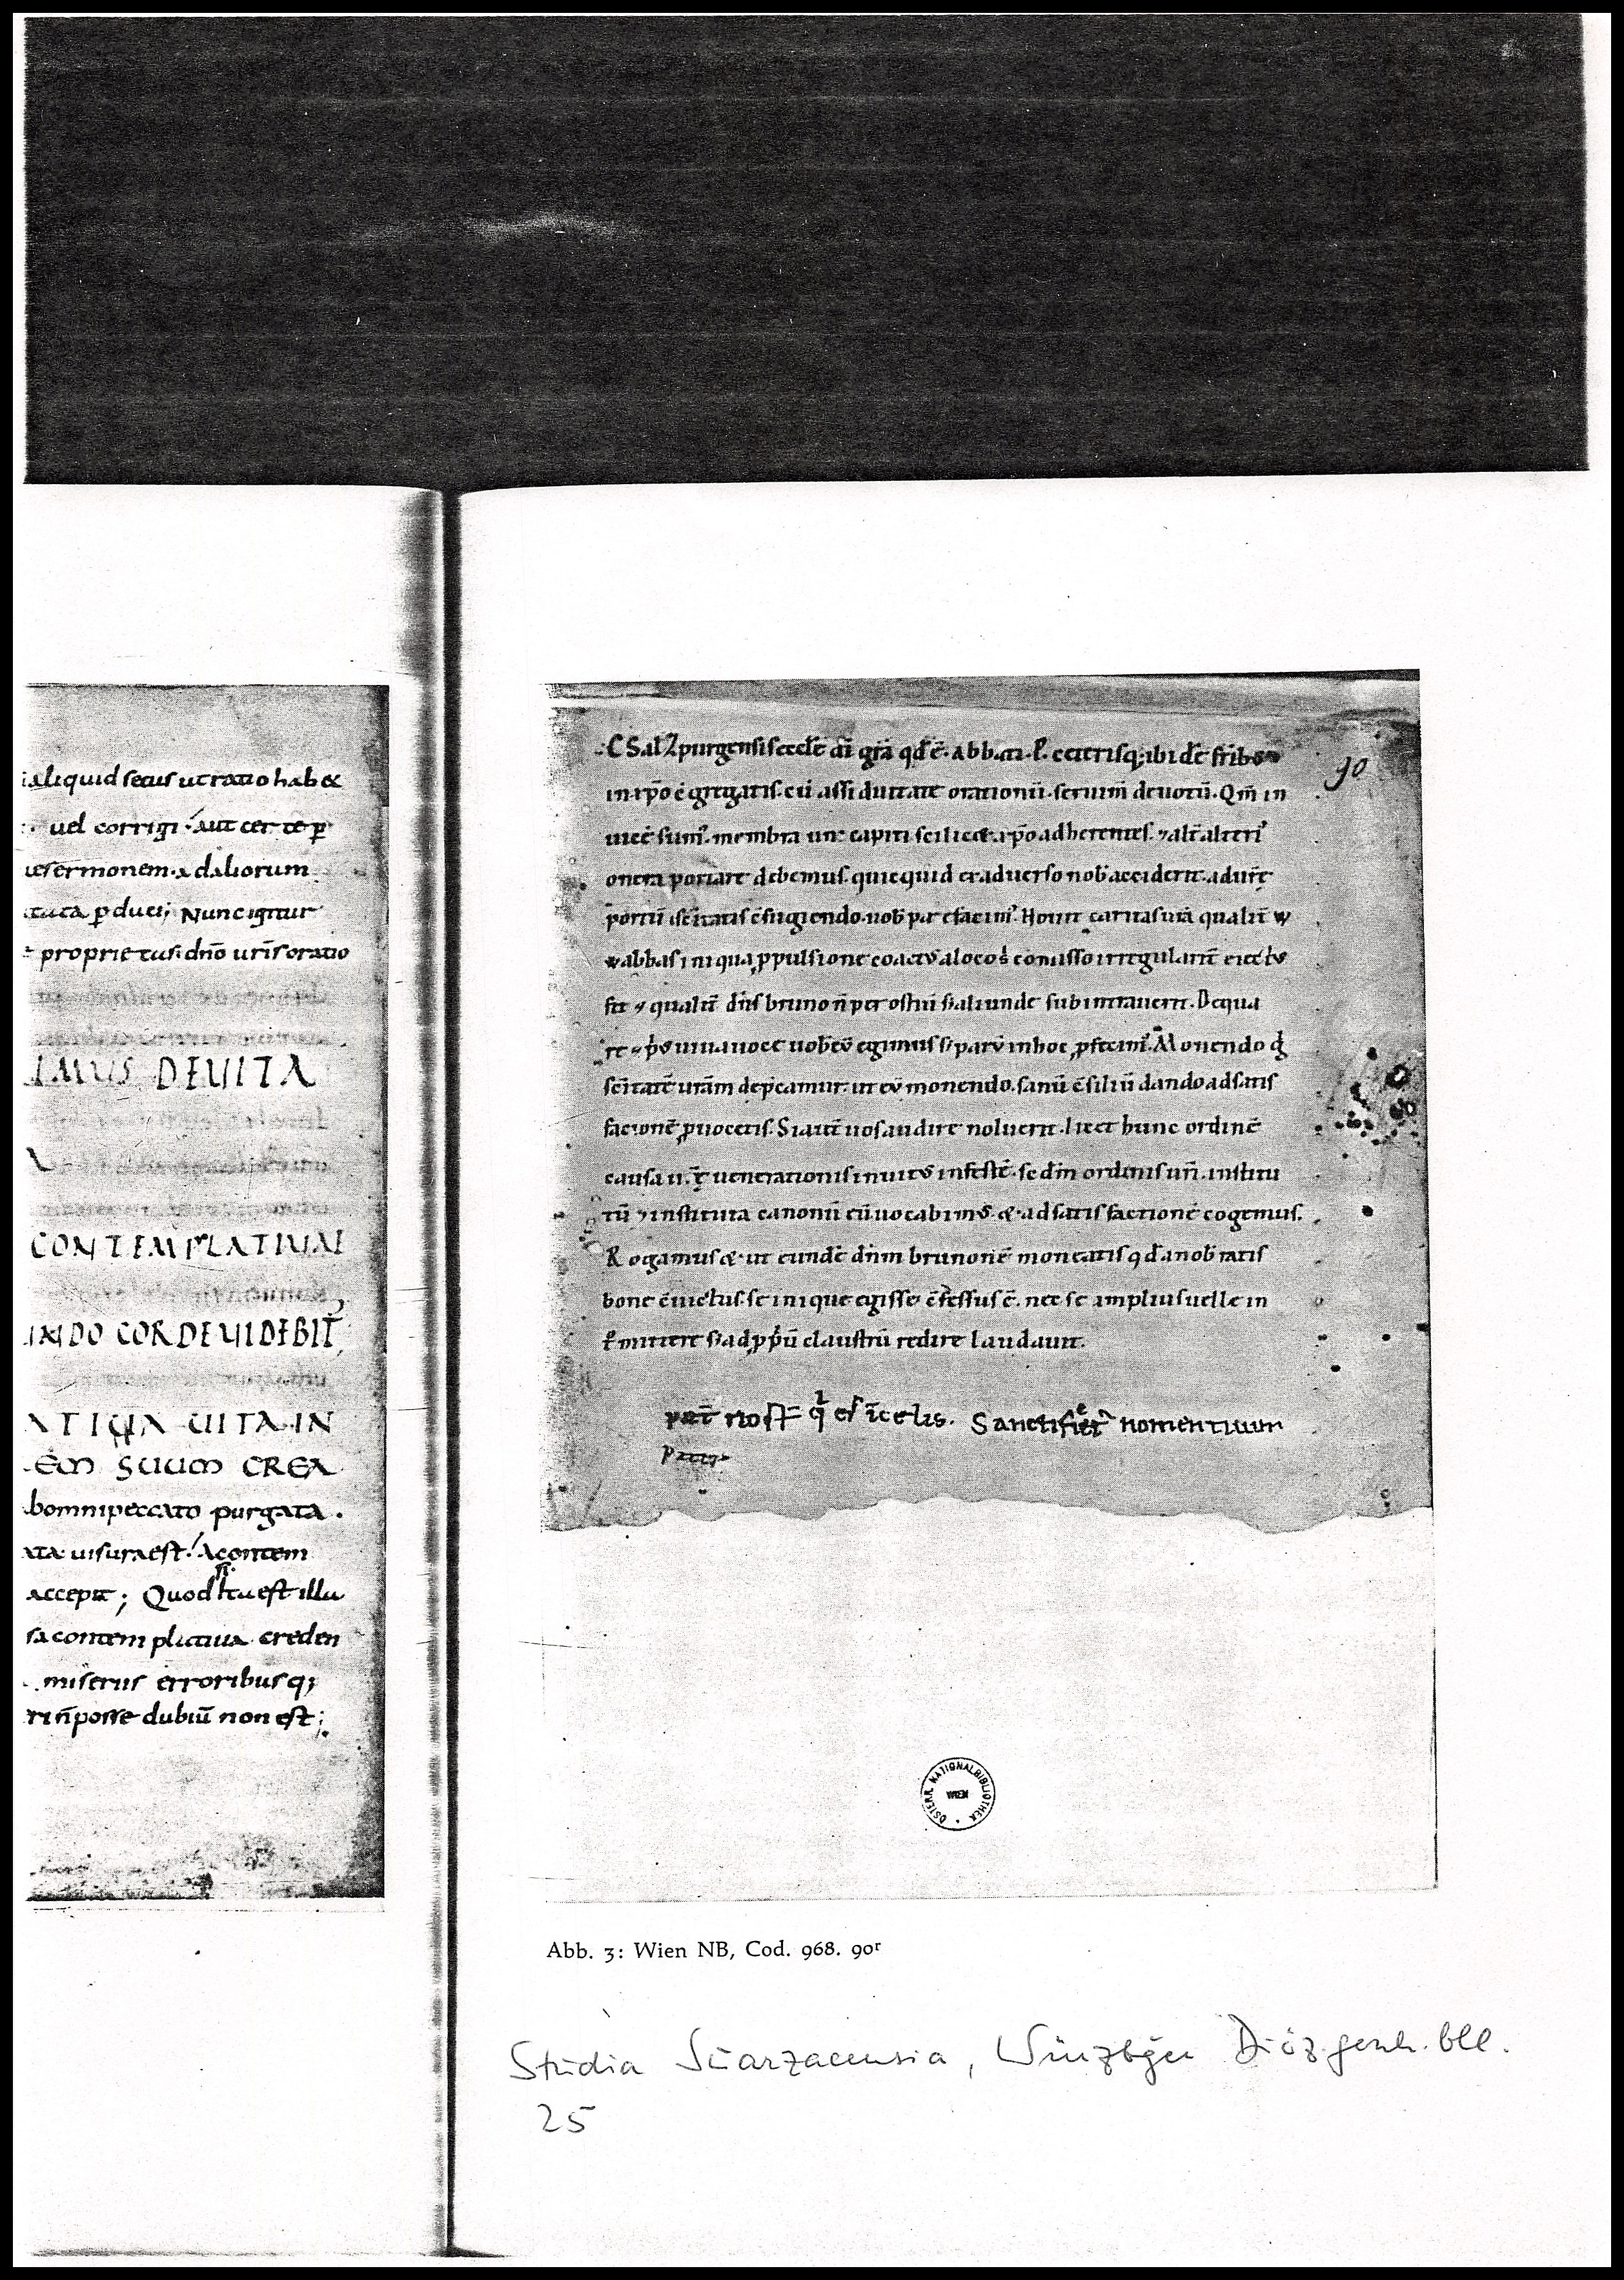 aliquid secus ut ratio habet
uel corrigi aut certe p̱
sermonem adaliorum
p̱duci; Nunc igitur
proprie dn̄o ur̄is oratio
IMUS DEUITA
CONTEMPLATIUA
CORDE UIDEBIT
UITA IN
SUUM CREA
bomni peccato purgata.
uisura est. Acontem
accepit; Quod est illu
sa contemplatiua creden
miseriis erroribusq;
n̄ posse dubiū non est;
C Salzpurgensis eccl̄e dī gr̄a qd̄ ē. abbati. P. ceterisq; ibi dē fr̄ibus
in xp̄o c̄gregatis. cū assiduitate orationū. seruim̄ deuotū. Qm̄ in
uicē sum᷒. membra un᷒ capiti scilicet xp̄o adherentes. ⁊ alt̄ alteri᷒
onera portare debemus. quicquid ex aduerso nob̄ acciderit. ad ur̄ę
portū sc̄itatis c̄fugiendo. uob̄ patefacim᷒. Nouit caritas ur̄a qualit̄ W
abbas iniqua p̱pulsione coactus a loco s̄ comisso irregularit̄ eiectus
sit ⁊ qualit̄ dn̄s bruno n̄ per ostiū s; aliunde subintrauerit. De qua
re ⁊ p̄us uiua uoce uob̄cū egimus s; parū in hoc p̱fecim᷒. Monendo g̊
sc̄itatē ur̄am dep̄camur. ut eū monendo. sanū c̄siliū dando ad satis
facionē p̱uocetis. Si aut̄ uos audire noluerit. licet hunc ordinē
causa u. ę uenerationis inuitus infestē. sed m̄ ordinis ur̄i. institu
tū ⁊ instituta canonū cū uocabimus. & ad satisfactionē cogemus.
Rogamus & ut eundē dn̄m brunonē moneatis qd̄ a nob̄ ratis
bone c̄uictus. se inique egisse c̄fessus ē. nec se amplius uelle in
t̄mittere s; ad p̱p̄ū claustrū redire laudauit.
pat̄ nost̄ qi es ī celis. Sanctificet᷒ nomen tuum
Pater
90
ÖSTERR. NATIONALBIBLIOTHEK WIEN
Abb. 3: Wien NB, Cod. 968. 90ʳ
Studia Suarzacensia, Würzbger Diözgesch.bll.
25